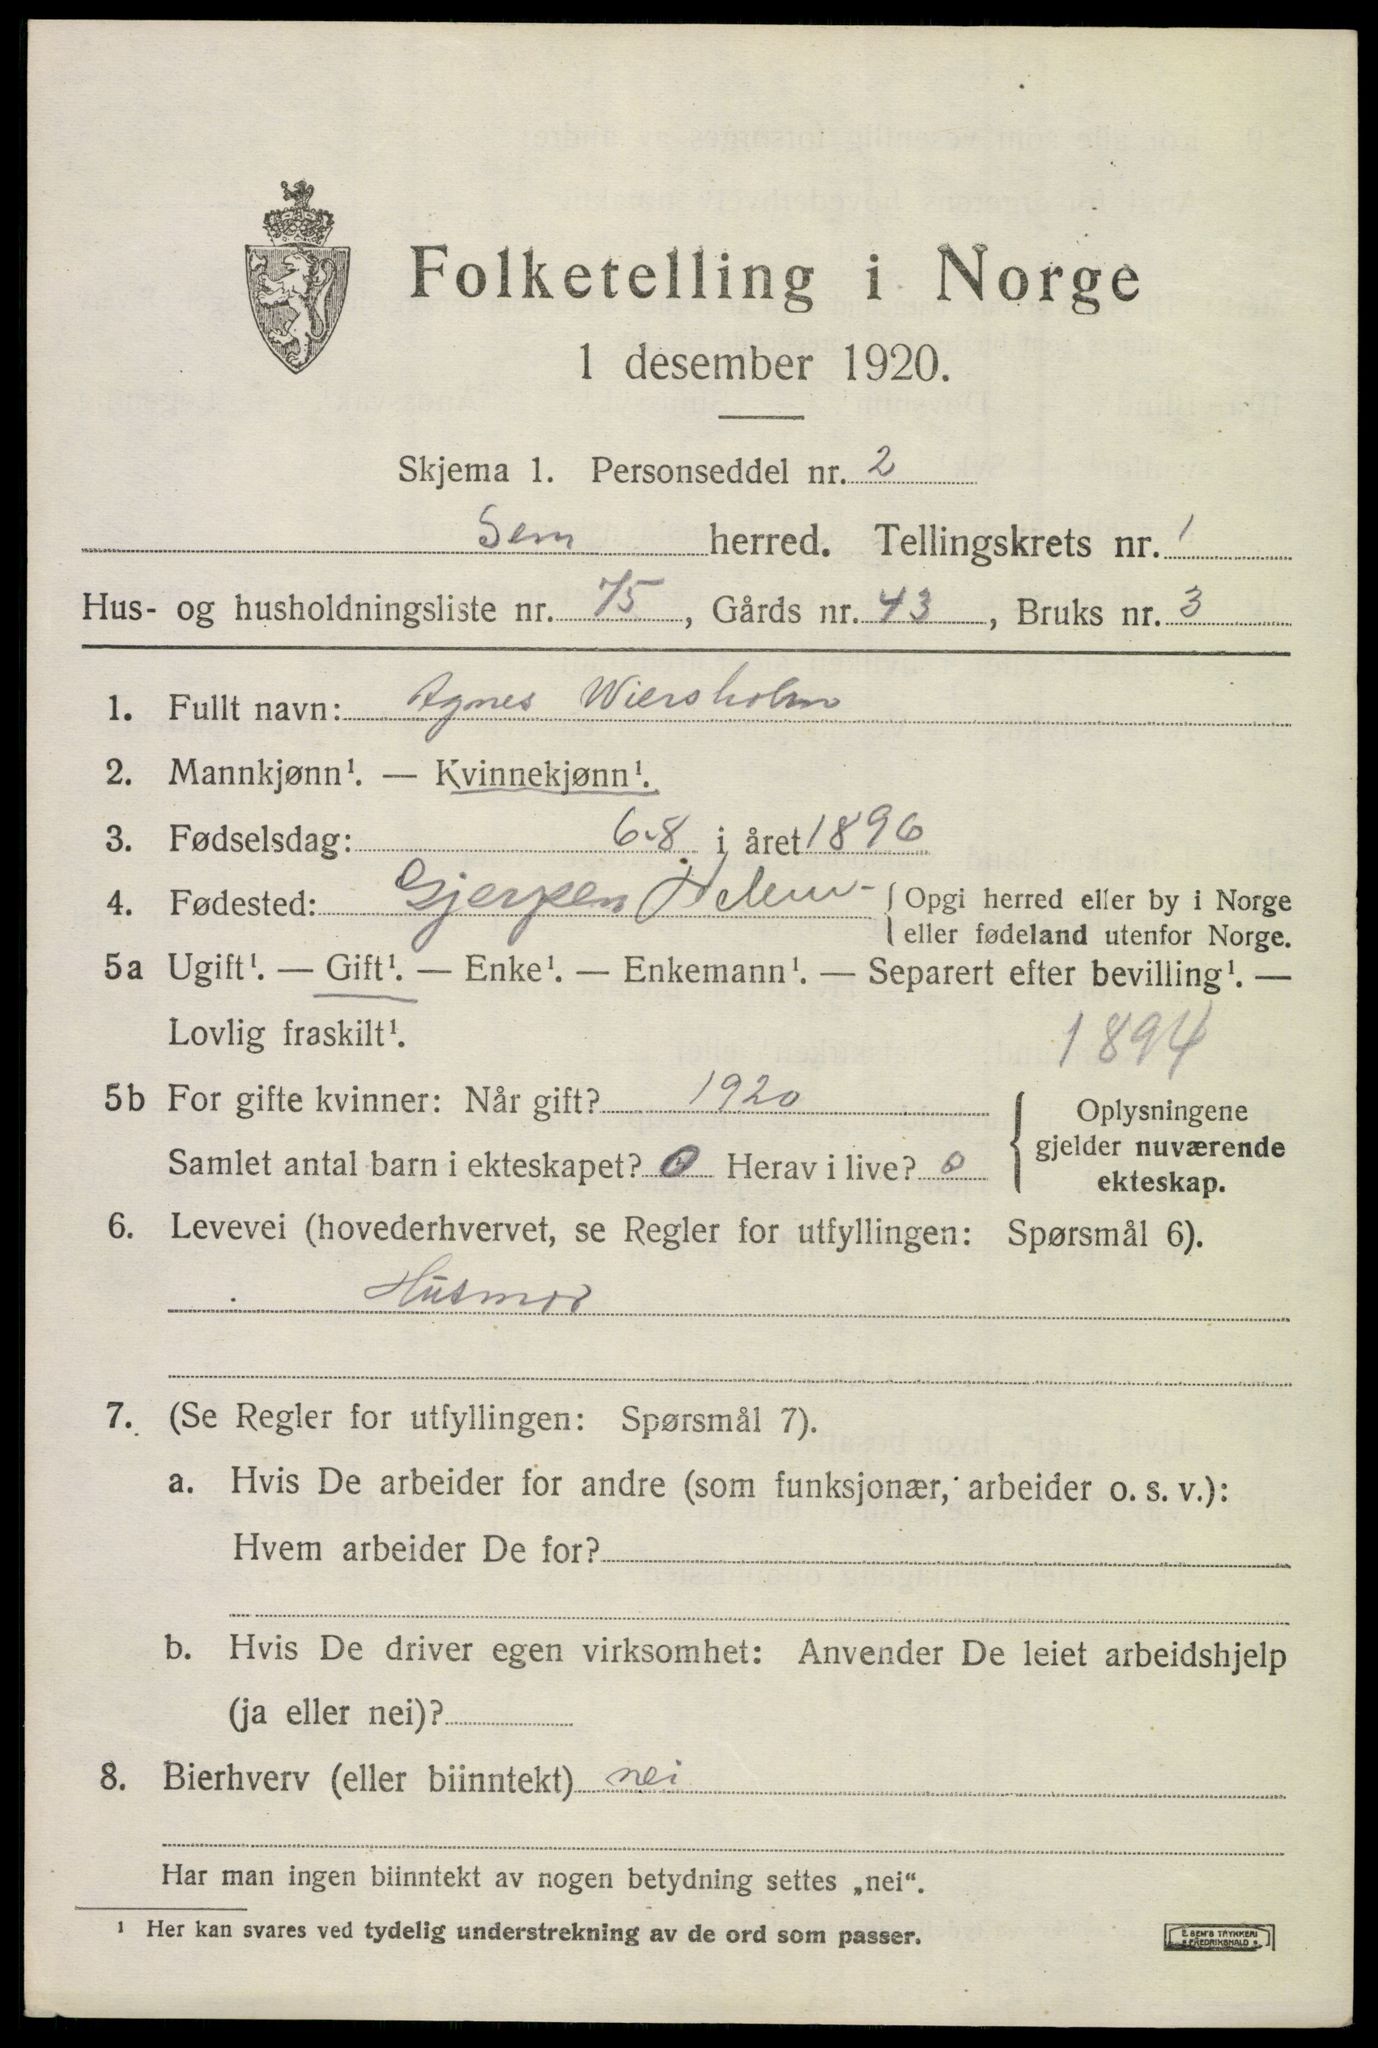 Folketelling i Norge
1 desember 1920.
Skjema 1. Personseddel nr. 2
Sem herred. Tellingskrets nr. 1
Hus- og husholdningsliste nr. 75, Gårds nr. 43, Bruks nr. 3
1. Fullt navn: Agnes Wiersholm
2. Mannkjønn¹. — Kvinnekjønn¹.
3. Fødselsdag: 6-8 i året 1896
4. Fødested: Gjerpen { Opgi herred eller by i Norge
eller fødeland utenfor Norge.
5a Ugift¹. — Gift¹. — Enke¹. — Enkemann¹. — Separert efter bevilling¹. —
Lovlig fraskilt¹. 1894
5b For gifte kvinner: Når gift? 1920
Samlet antal barn i ekteskapet? 0 Herav i live? 0
{ Oplysningene
gjelder nuværende
ekteskap.
6. Levevei (hovederhvervet, se Regler for utfyllingen: Spørsmål 6).
Husmor
7. (Se Regler for utfyllingen: Spørsmål 7).
a. Hvis De arbeider for andre (som funksjonær, arbeider o. s. v.):
Hvem arbeider De for?
b. Hvis De driver egen virksomhet: Anvender De leiet arbeidshjelp
(ja eller nei)?
8. Bierhverv (eller biinntekt) nei
Har man ingen biinntekt av nogen betydning settes „nei“.
¹ Her kan svares ved tydelig understrekning av de ord som passer.
E. SEM'S TRYKKERI
FREDRIKSHALD